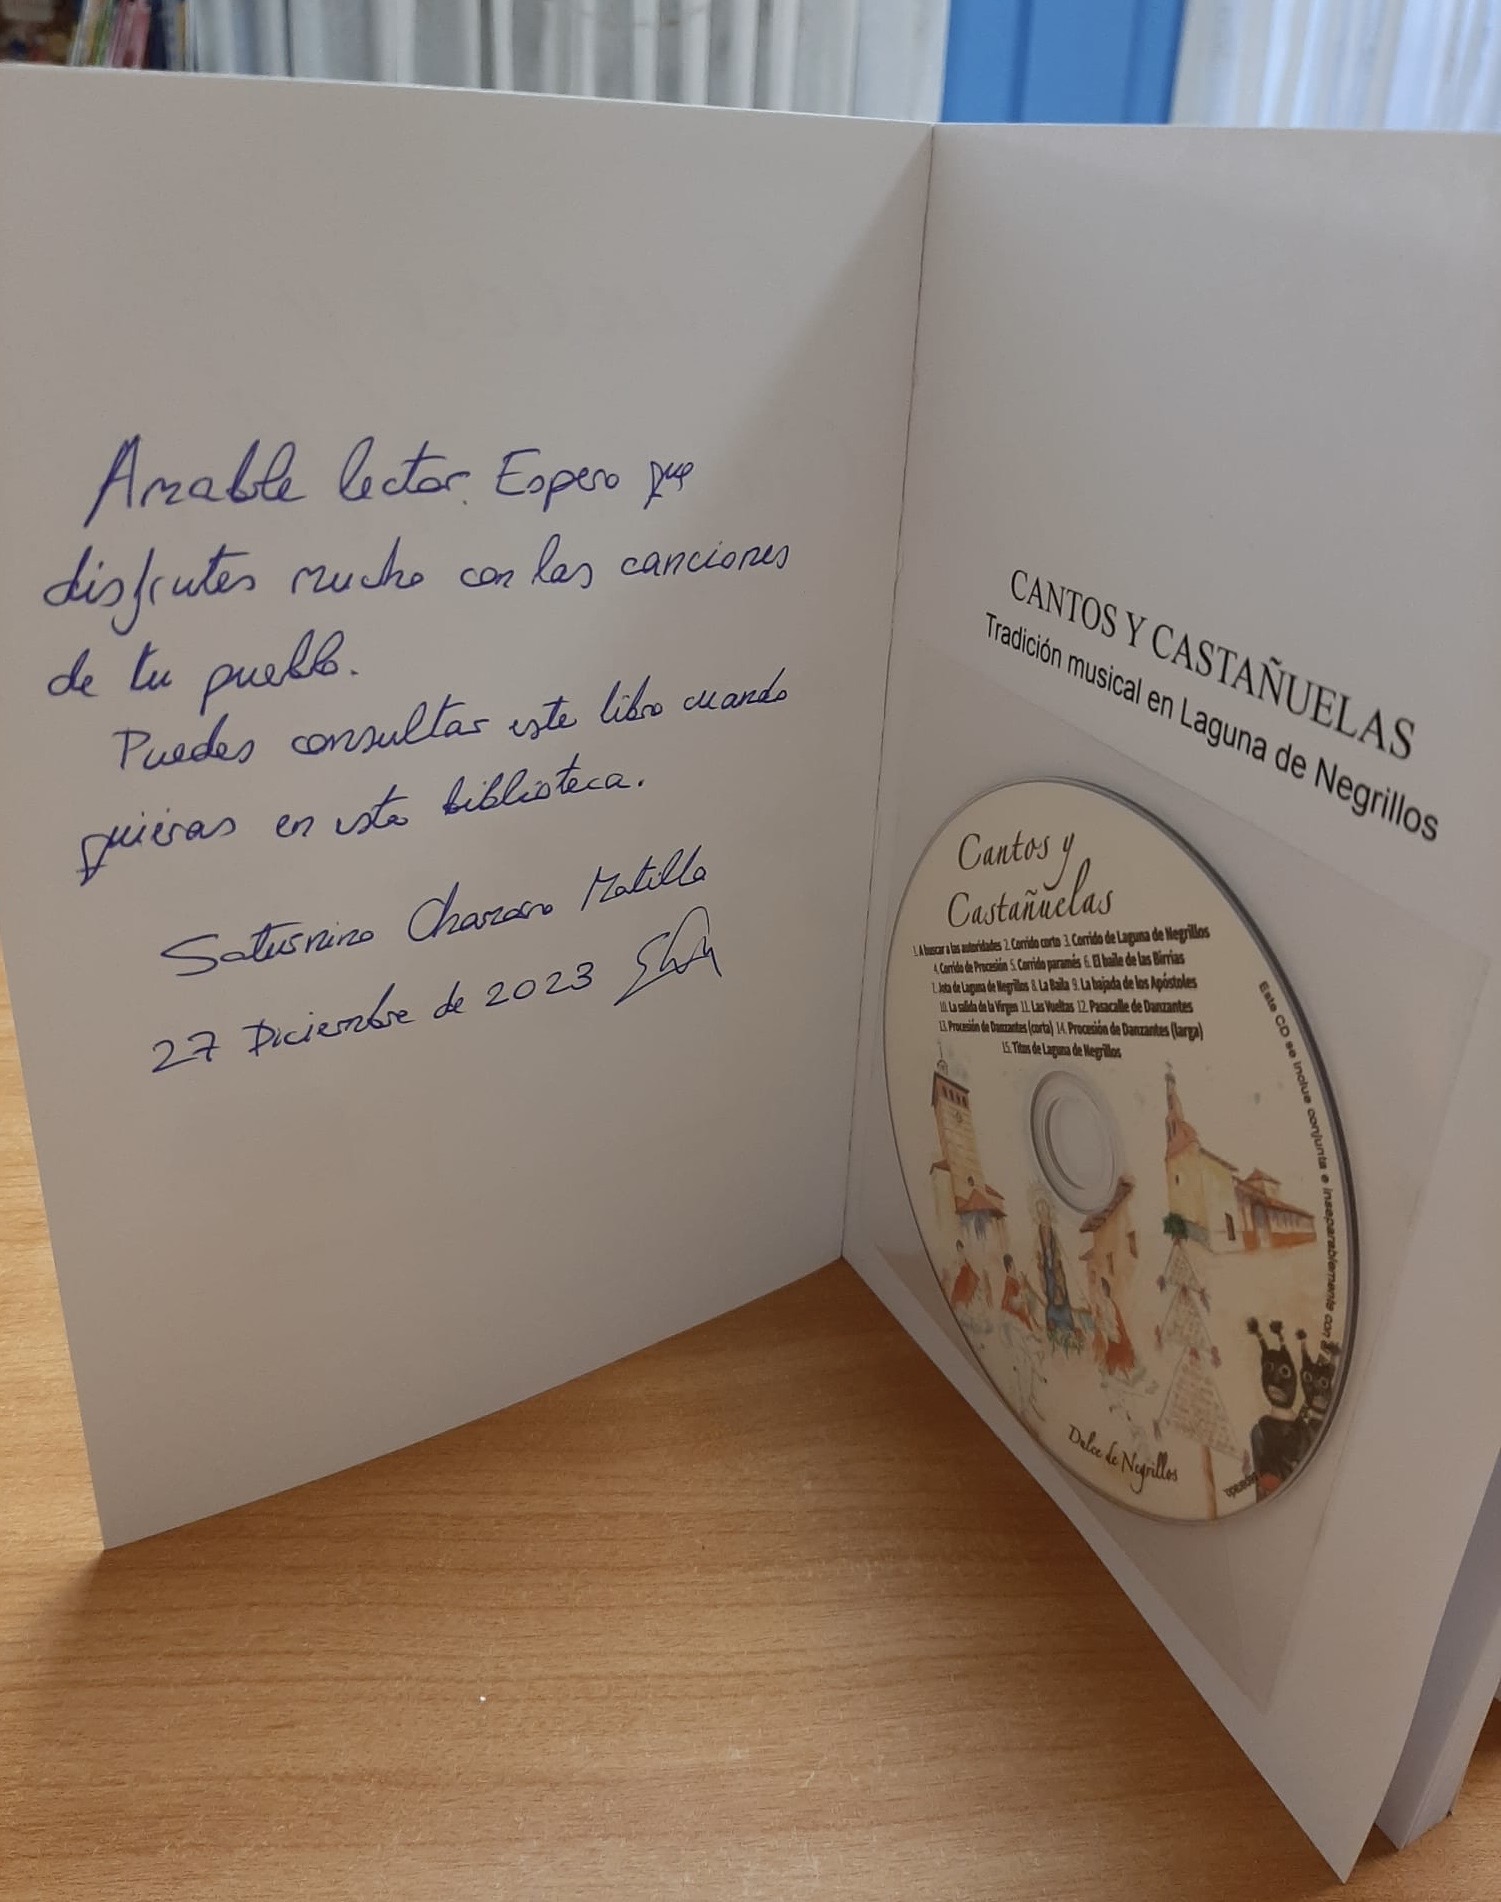 Amable lector. Espero que
disfrutes mucho con las canciones
de tu pueblo.
Puedes consultar este libro cuando
quieras en esta biblioteca.
Saturnino Chamorro Matilla
27 Diciembre de 2023
CANTOS Y CASTAÑUELAS
Tradición musical en Laguna de Negrillos
Cantos y
Castañuelas
1. A buscar a las autoridades 2. Corrido corto 3. Corrido de Laguna de Negrillos
4. Corrido de Procesión 5. Corrido paramés 6. El baile de las Birrias
7. Jota de Laguna de Negrillos 8. La Baila 9. La bajada de los Apóstoles
10. La salida de la Virgen 11. Las Vueltas 12. Pasacalle de Danzantes
13. Procesión de Danzantes (corta) 14. Procesión de Danzantes (larga)
15. Titos de Laguna de Negrillos
Este CD se incluye conjunta e inseparablemente con
Dulce de Negrillos